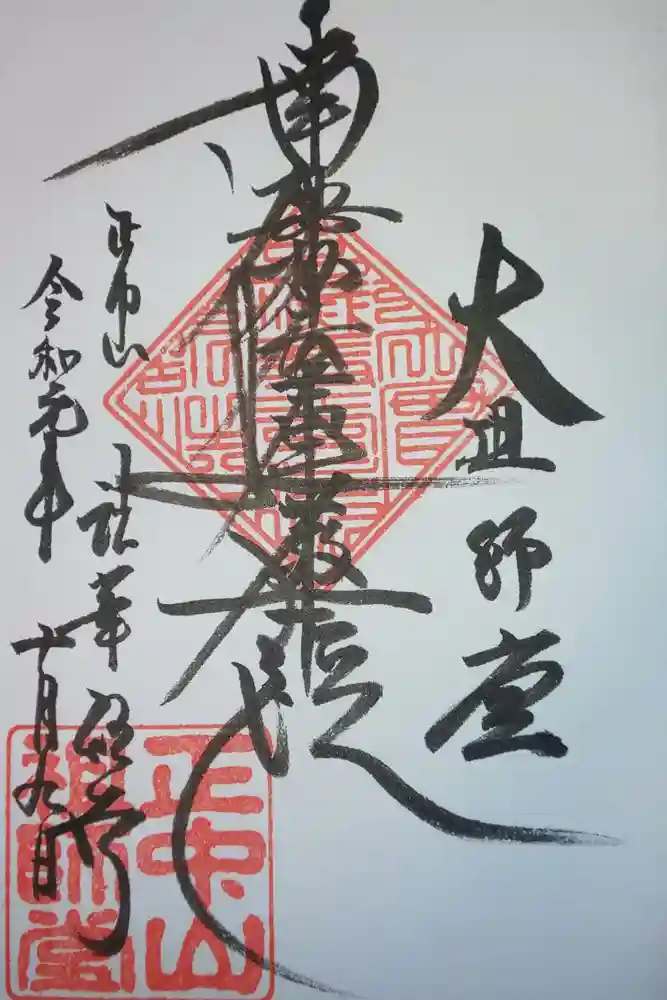 大祖師堂
南無妙法蓮華経
正中山
法華経寺
令和元年
十月九日
正中山
祖師堂